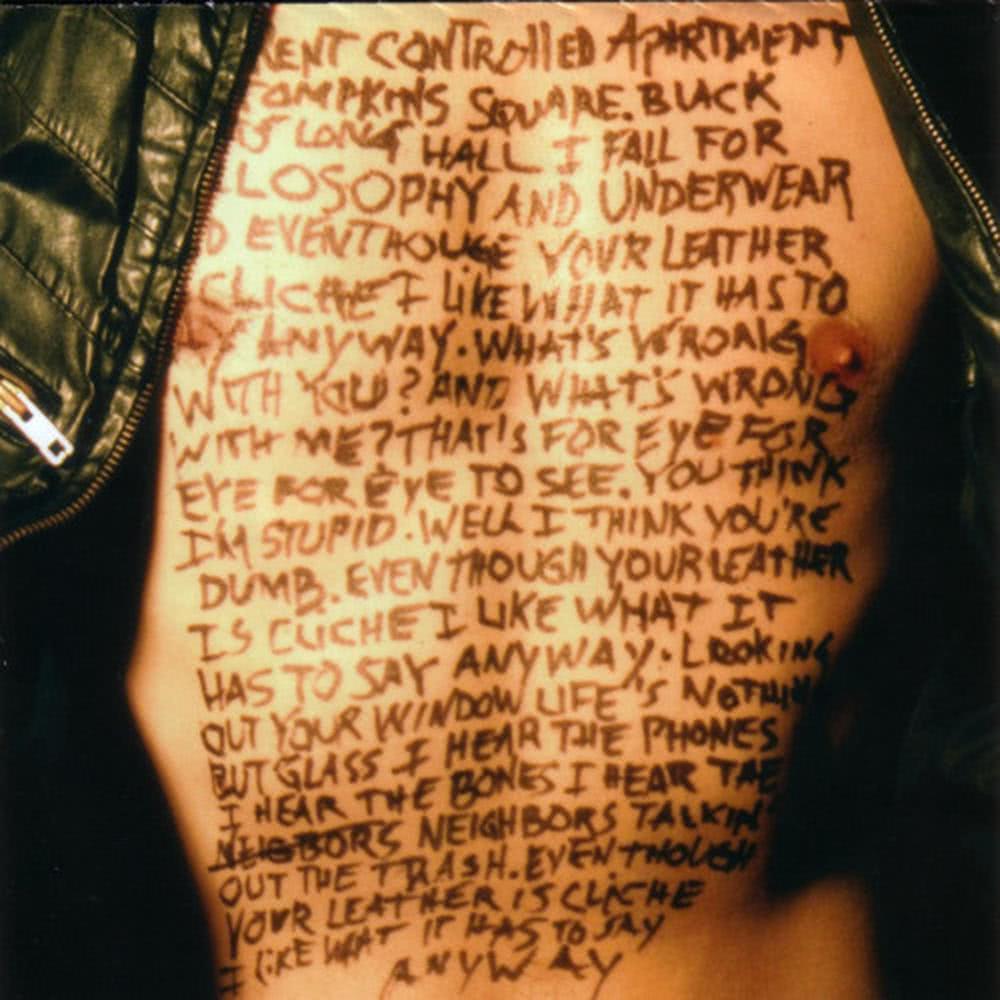 RENT CONTROLLED APARTMENT
TOMPKINS SQUARE. BLACK
LONG HALL I FALL FOR
LOSOPHY AND UNDERWEAR
D EVENTHOUGE YOUR LEATHER
CLICHE I LIKE WHAT IT HAS TO
ANYWAY. WHAT'S WRONG
WITH YOU? AND WHAT'S WRONG
WITH ME? THAT'S FOR EYE FOR
EYE FOR EYE TO SEE. YOU THINK
I'M STUPID. WELL I THINK YOU'RE
DUMB. EVEN THOUGH YOUR LEATHER
IS CLICHE I LIKE WHAT IT
HAS TO SAY ANYWAY. LOOKING
OUT YOUR WINDOW LIFE'S NOTHIN
BUT GLASS I HEAR THE PHONES
I HEAR THE BONES I HEAR THE
NEIGBORS NEIGHBORS TALKIN
OUT THE TRASH. EVEN THOUGH
YOUR LEATHER IS CLICHE
I LIKE WHAT IT HAS TO SAY
ANYWAY